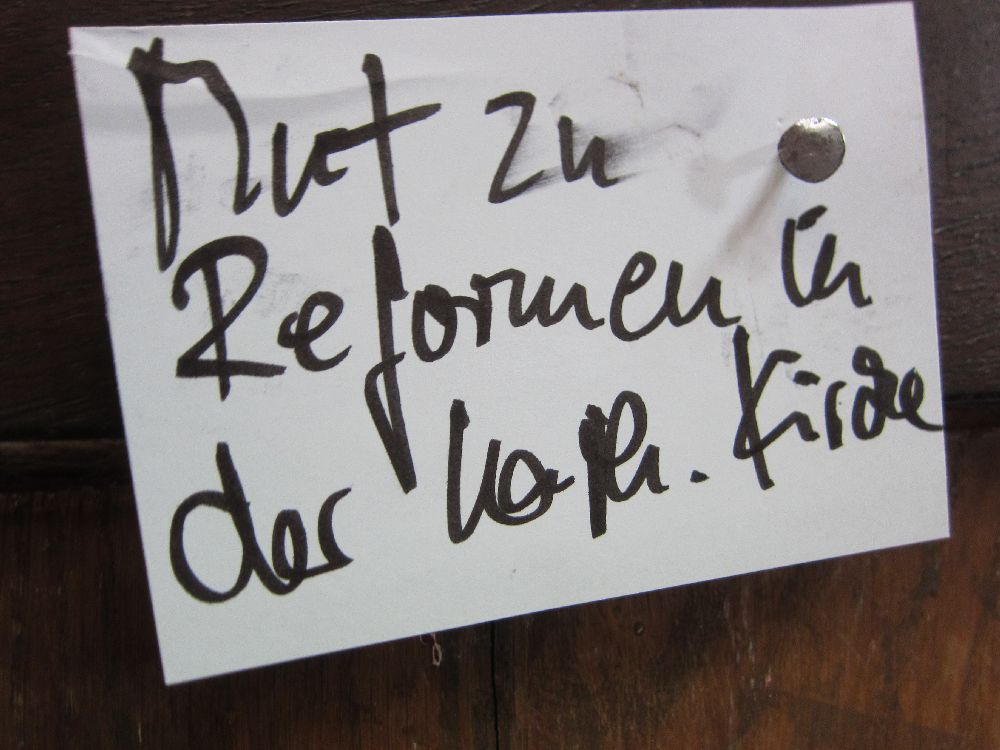 Mut zu
Reformen in
der kath. Kirche